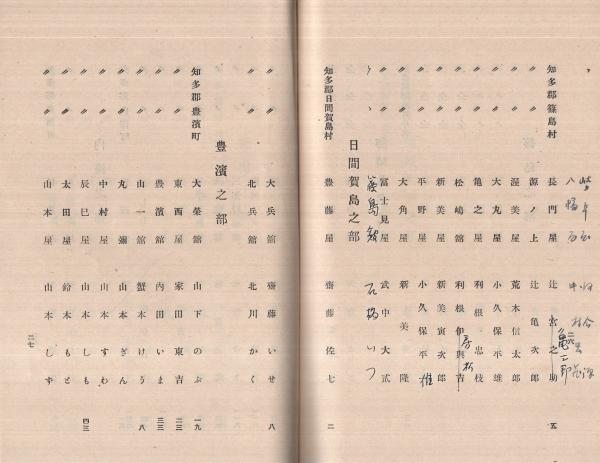 知多郡篠島村 長門屋 辻宮之助 五
〃 〃 源ノ上 辻亀次郎
〃 〃 渥美屋 荒木信太郎
〃 〃 大丸屋 小久保平雄
〃 〃 亀之屋 利根忠枝
〃 〃 松嶋舘 利根伊與吉
〃 〃 新美屋 新美寅次郎
〃 〃 平野屋 小久保平
〃 〃 大角屋 新美隆
〃 〃 富士見屋 武中大弍
篠島舘 石橋いつ
日間賀島之部
知多郡日間賀島村 豊藤屋 齋藤佐七 二
〃 〃 大兵舘 齋藤いせ 八
〃 〃 北兵舘 北川かく
豊濱之部
知多郡豊濱町 大榮舘 山下のぶ 一九
〃 〃 東西屋 家田東吉 二三
〃 〃 豊濱舘 内田いま 三三
〃 〃 山一舘 蟹本けう 八
〃 〃 丸彌 山本ぎん
〃 〃 中村屋 山本すわ
〃 〃 辰巳屋 山本しも 四三
〃 〃 太田屋 鈴木もと
〃 〃 山本屋 山本しず
二七